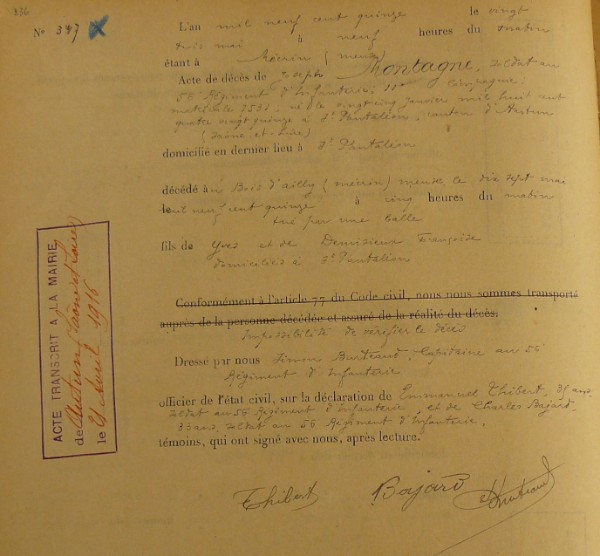 336
Nº 347
L'an mil neuf cent quinze le vingt
trois mai à neuf heures du matin
étant à Mécrin (meuse)
Acte de décès de Joseph Montagne, soldat au
56 Régiment d'Infanterie, 11ème Compagnie,
matricule né le vingt cinq janvier mil huit cent
quatre vingt quinze à St Pantaléon, canton d'Autun
(Saône-et-Loire)
domicilié en dernier lieu à St Pantaléon
décédé au Bois d'ailly (mécrin) meuse, le dix sept mai
le mil neuf cent quinze à cinq heures du matin
tué par une balle
fils de Yves et de Françoise
domiciliés à St Pantaléon
Conformément à l'article 77 du Code civil, nous nous sommes transporté
auprès de la personne décédée et assuré de la réalité du décès.
impossibilité de vérifier le décès
Dressé par nous Simon Capitaine au 56
Régiment d'Infanterie
officier de l'état civil, sur la déclaration de Emmanuel Thibert, 35 ans,
soldat au 56 Régiment d'Infanterie, et de Charles Bajard,
33 ans, soldat au 56 Régiment d'Infanterie,
témoins, qui ont signé avec nous, après lecture.
Thibert Bajard
ACTE TRANSCRIT A LA MAIRIE
de Autun (Saône et Loire)
le avril 1916